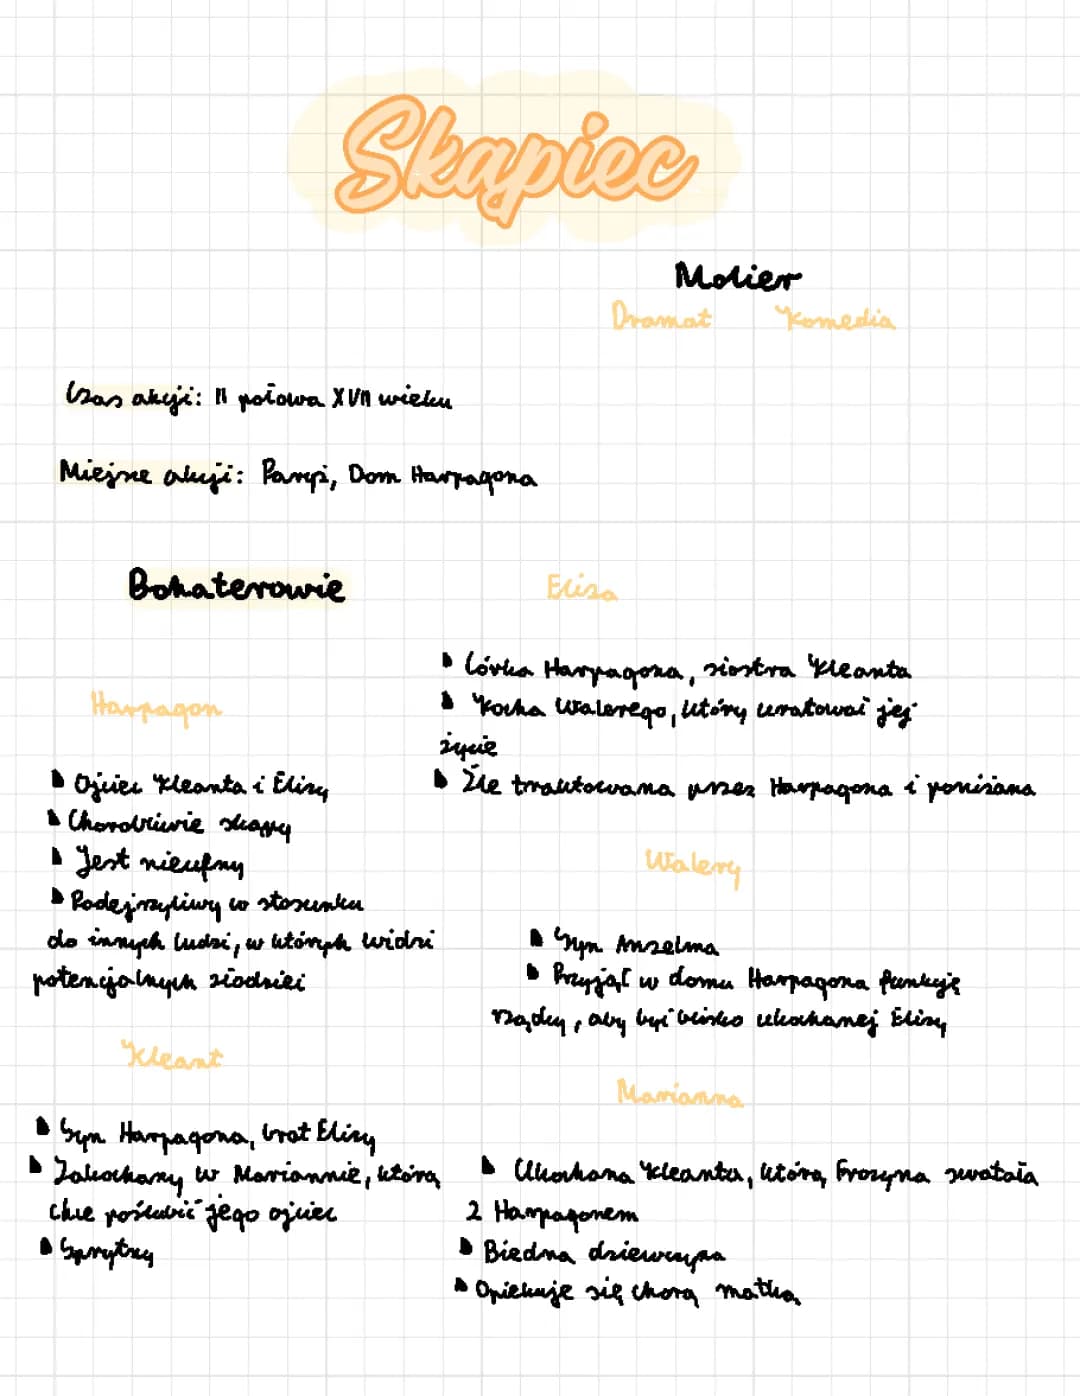 Skąpiec
Molier
Dramat Komedia
Czas akcji: II połowa XVII wieku
Miejsce akcji: Paryż, Dom Harpagona
Bohaterowie
Harpagon
Ojciec Kleanta i Elizy
Chorobliwie skąpy
Jest nieufny
Podejrzliwy w stosunku
do innych ludzi, w których widzi
potencjalnych złodziei
Kleant
Syn Harpagona, brat Elizy
Zakochany w Mariannie, którą
chce poślubić jego ojciec
Sprytny
Eliza
Córka Harpagona, siostra Kleanta
Kocha Walerego, który uratował jej
życie
Źle traktowana przez Harpagona i poniżana
Walery
Syn Anzelma
Przyjął w domu Harpagona funkcję
rządcy, aby być blisko ukochanej Elizy
Marianna
Ukochana Kleanta, którą Frozyna swatała
z Harpagonem
Biedna dziewczyna
Opiekuje się chorą matką